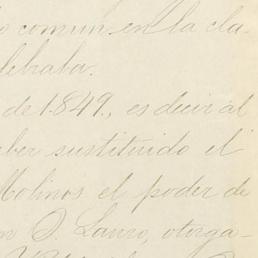 comun en la cla-
lebraba.
de 1849., es decir al
ber sustituido el
Molinos el poder de
n D. Lauro, otorga-